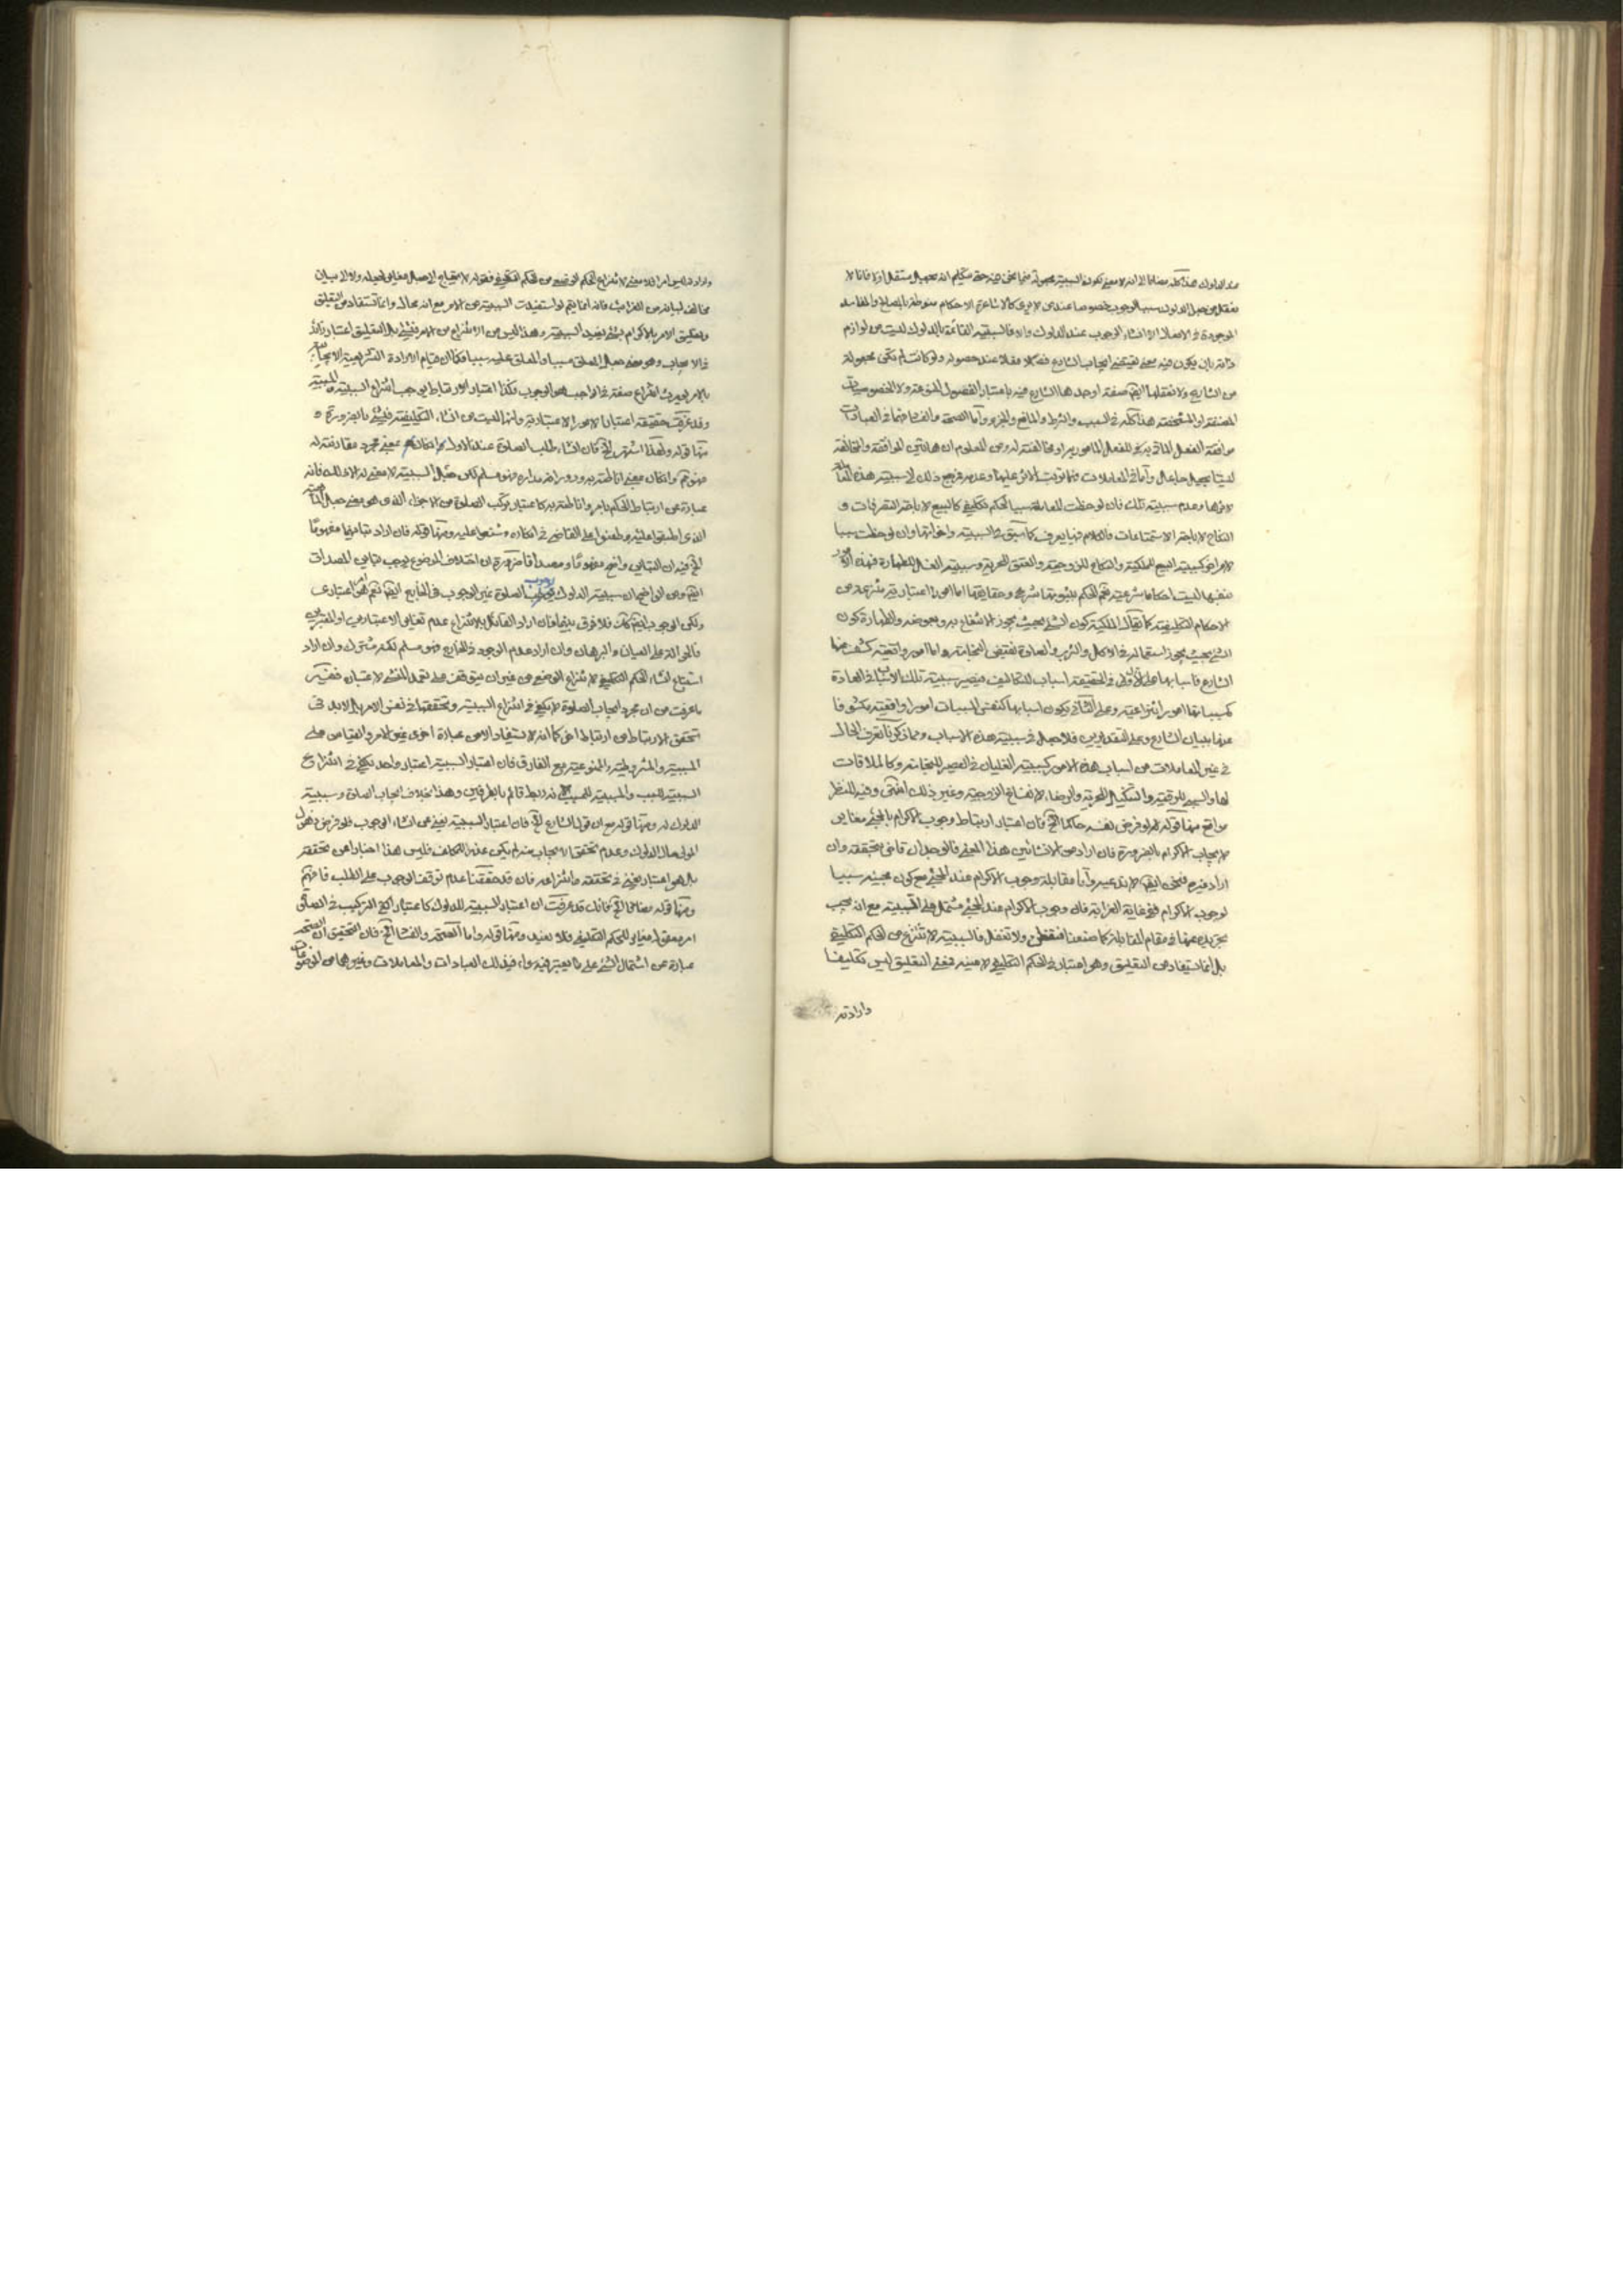 عند الدلوك هذا كله مضافا الى انه لا معنى لكون السببية مجعولة فيما نحن فيه حتى يتكلم انه بجعل مستقل اولا فانا لا
نعقل من جعل الدلوك سببا للوجوب خصوصا عند من لا يرى كالاشاعرة الاحكام منوطة بالمصالح والمفاسد
الموجودة في الافعال الا انشاء الوجوب عند الدلوك والا فالسببية القائمة بالدلوك ليست من لوازم
ذاته بان يكون فيه معنى يقتضي ايجاب الشارع فعلا عند حصوله ولو كانت لم تكن مجعولة
من الشارع ولا نعقلها ايضا صفة اوجدها الشارع فيه باعتبار الفصول المنوعة ولا الخصوصيات
المصنفة او المشخصة هذا كله في السبب والشرط والمانع والجزء واما الصحة والفساد فهما في العبادات
موافقة الفعل الماتى به للفعل المامور به او مخالفته له ومن المعلوم ان هاتين الموافقة والمخالفة
ليستا بجعل جاعل واما في المعاملات فهما ترتب الاثر عليها وعدمه فمرجع ذلك الى سببية هذه المعاملة
لاثرها وعدم سببية تلك فان لوحظت المعاملة سببا لحكم تكليفي كالبيع لاباحة التصرفات و
النكاح لاباحة الاستمتاعات فالكلام فيها يعرف مما سبق في السببية واخواتها وان لوحظت سببا
لامر اخر كسببية البيع للملكية والنكاح للزوجية والعتق للحرية وسببية الغسل للطهارة فهذه الامور
بنفسها ليست احكاما شرعية نعم الحكم بثبوتها شرعي وحقايقها اما امور اعتبارية منتزعة من
الاحكام التكليفية كما يقال الملكية كون الشيء بحيث يجوز الانتفاع به وبعوضه والطهارة كون
الشيء بحيث يجوز استعماله في الاكل والشرب والصلوة نقيض النجاسة واما امور واقعية كشف عنها
الشارع فاسبابها على الاول في الحقيقة اسباب للتكاليف فيصير سببية تلك الاسباب في العادة
كمسبباتها امورا انتزاعية وعلى الثاني يكون اسبابها كنفس المسببات امورا واقعية مكشوفا
عنها ببيان الشارع وعلى التقديرين فلا جعل في سببية هذه الاسباب ومما ذكرنا تعرف الحال
في غير المعاملات من اسباب هذه الامور كسببية الغليان في العصير للنجاسة وكالملاقات
لها والسبي للرقية والتنكيل للحرية والرضاع لانفساخ الزوجية وغير ذلك انتهى وفيه للنظر
مواقع منها قوله لو فرض نفسه حاكما الخ فان اعتبار ارتباط وجوب الاكرام بالمجيء مغاير
لايجاب الاكرام بالضرورة فان اراد من الانشائين هذا المعنى فالوجدان قاض بتحققه وان
اراد غيره فنحن ايضا لا ندعيه واما مقابلة وجوب الاكرام عند المجيء مع كون مجيئه سببا
لوجوب الاكرام ففي غاية الغرابة فان وجوب الاكرام عند المجيء مشتمل على السببية مع انه يجب
تجريده عنها في مقام المقابلة كما صنعنا فتفطن ولا تغفل فالسببية لا تنتزع من الحكم التكليفي
بل انما تستفاد من التعليق وهو اعتبار في الحكم التكليفي لا عينه فمعنى التعليق ليس تكليفا
وارادته
وارادة ليس امرا فلا معنى لانتزاع الحكم الوضعي من الحكم التكليفي فقوله لا يحتاج الى جعل مغاير لجعله ولا الى بيان
مخالف لبيانه من الغرائب فانه انما يتم لو استفيدت السببية من الامر مع انه محال وانما تستفاد من التعليق
وتعليق الامر بالاكرام بشيء يفيد السببية وهذا ليس من الانتزاع من الامر بشيء بل التعليق اعتبار زائد
في الايجاب وهو معنى جعل المعلق مسببا والمعلق عليه سببا فكما ان قيام الارادة التشريعية الايجابية
بالامر يوجب انتزاع صفة في الواجب هو الوجوب فكذا اعتبار الارتباط يوجب انتزاع السببية والمسببية
وقد عرفت حقيقة اعتبار الامور الاعتبارية وانها ليست من انشاء التكليف في شيء بالضرورة
منها قوله ولهذا اشتهر الخ فان انشاء طلب الصلوة عند الدلوك ان كان بمعنى مجرد مقارنته له
فهو تم وان كان بمعنى اناطته به ودورانه مداره فهو مسلم لكن جعل السببية لا معنى له الا ذلك فانه
عبارة عن ارتباط الحكم بامر واناطته به كاعتبار تركب الصلوة من الاجزاء الذي هو معنى جعل الماهية
الذي اطبقوا عليه وطعنوا على القاضي في انكاره وشنعوا عليه ومنها قوله فان اراد تباينهما مفهوما
الخ فيه ان التباين واضح مفهوما ومصداقا ضرورة ان اختلاف الموضوع يوجب تباين المصداق
ايضا ومن الواضح ان سببية الدلوك لوجوب الصلوة غير الوجوب في الخارج ايضا نعم هو اعتباري
ولكن الوجوب ايضا كك فلا فرق بينهما فان اراد القائل بالانتزاع عدم تغاير الاعتبارين او المعتبرين
فالحوالة على العيان والبرهان وان اراد عدم الوجود في الخارج فهو مسلم لكنه مشترك وان اراد
استتباع انشاء الحكم التكليفي لانتزاع الوضعي من غير ان يتوقف على تجدد المنشئ لاعتبار ففيه
ما عرفت من ان مجرد ايجاب الصلوة لا يكفي في انتزاع السببية وتحققها في نفس الامر بل لا بد في
تحقق الارتباط من ارتباط اخر كما انه لا يستفاد الا من عبارة اخرى غير الامر والقياس على
المسببية والمشروطية والممنوعية مع الفارق فان اعتبار السببية اعتبار واحد يكفي في انتزاع
السببية للسبب والمسببية للمسبب فانه ربط قائم بالطرفين وهذا بخلاف ايجاب الصلوة وسببية
الدلوك له ومنها قوله مع ان قول الشارع الخ فان اعتبار السببية يغني عن انشاء الوجوب فلو فرض ذهول
المولى حال الدلوك وعدم تحقق الايجاب منه لم يكن عذرا للمكلف فليس هذا اخبارا عن تحققه
بل هو اعتبار يغني في تحققه وانتزاعه فان قد حققنا عدم توقف الوجوب على الطلب فافهم
ومنها قوله مضافا الخ فانك قد عرفت ان اعتبار السببية للدلوك كاعتبار التركيب في الصلوة
امر معقول مغاير للحكم التكليفي فلا نعيد ومنها قوله واما الصحة والفساد الخ فان التحقيق ان الصحة
عبارة عن اشتمال الشيء على ما يعتبر فيه سواء في ذلك العبادات والمعاملات وغيرها من الموضوعات